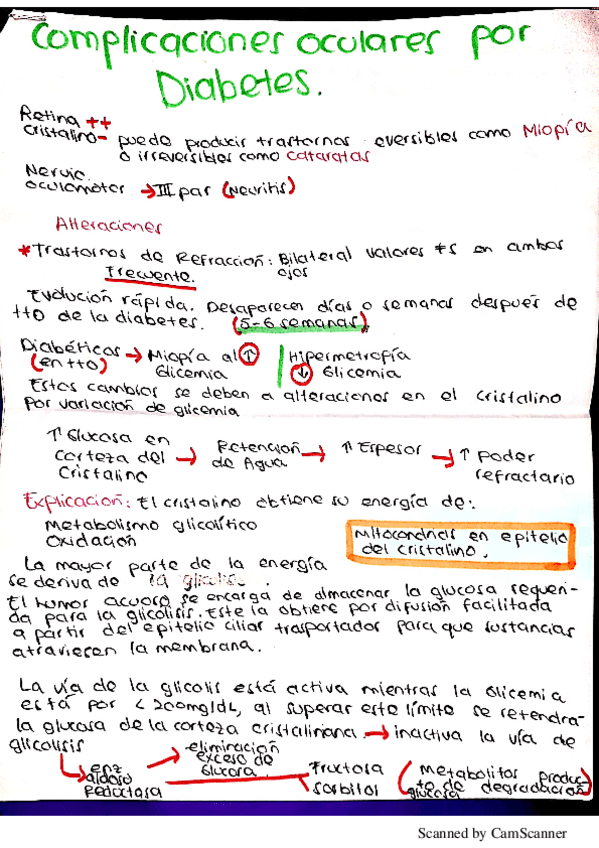 Complicaciones oculares por
Diabetes.
Retina ++
Cristalino- puede producir trastornos eversibles como Miopía
o irreversibles como cataratas
Nervio
oculomotor → III par (Neuritis)
Alteraciones
*Trastornos de Refracción: Bilateral valores ≠s en ambos
Frecuente. ojos
Evolución rápida. Desaparecen días o semanas después de
tto de la diabetes. (5-6 semanas)
Diabéticos → Miopía al ↑ Hipermetropía
(en tto) Glicemia ↓ Glicemia
Estos cambios se deben a alteraciones en el cristalino
por variación de glicemia
↑ Glucosa en
corteza del → Retención de Agua → ↑ Espesor → ↑ poder
Cristalino refractario
Explicación: El cristalino obtiene su energía de:
Metabolismo glicolítico
Oxidación
Mitocondrias en epitelio
del cristalino.
La mayor parte de la energía
se deriva de la glicolisis.
El humor acuoso se encarga de almacenar la glucosa requeri-
da para la glicolisis. Este la obtiene por difusión facilitada
a partir del epitelio ciliar trasportados para que sustancias
atraviesen la membrana.
La vía de la glicolis está activa mientras la Glicemia
está por <200mg/dL, al superar este límite se retendra
la glucosa de la corteza cristaliniana. → inactiva la vía de
glicolisis
enz aldosa reductasa
eliminación
exceso de
Glucosa.
Fructosa
sorbitol
(Metabolitos produc-
to de degradación)
glucosa
Scanned by CamScanner